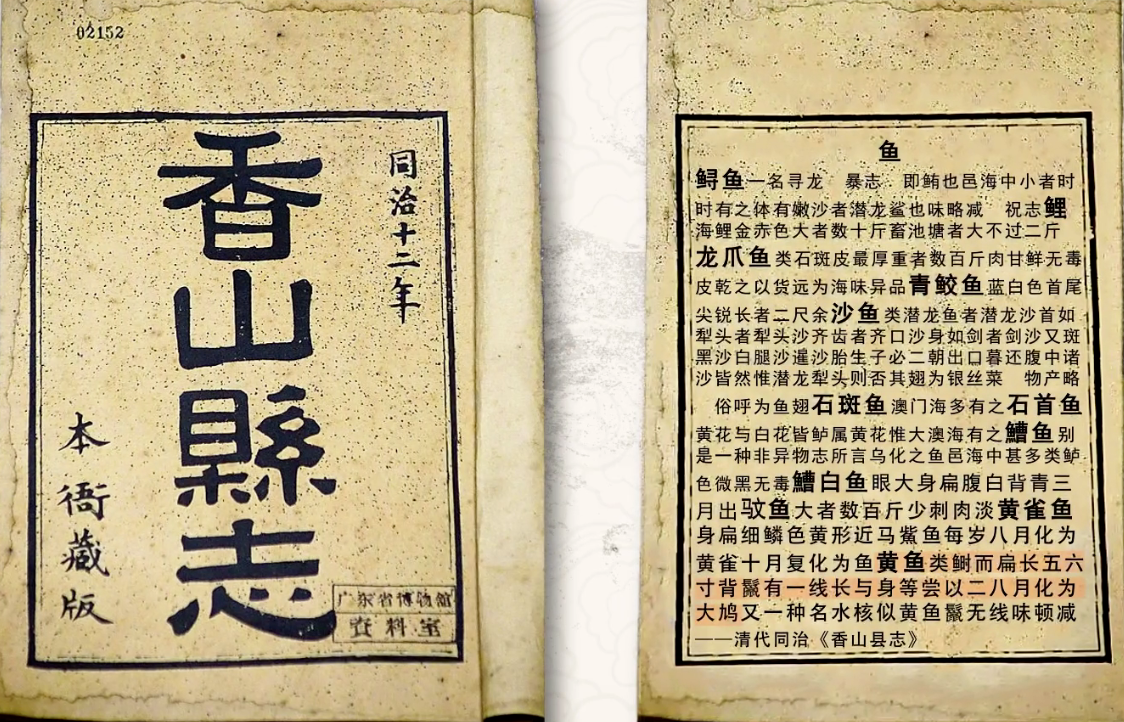 02152
同治十二年
香山縣志
本衙藏版
广东省博物館
資料室
鱼
鲟鱼一名寻龙 暴志 即鲔也邑海中小者时
时有之体有嫩沙者潜龙鲨也味略减 祝志鲤
海鲤金赤色大者数十斤畜池塘者大不过二斤
龙爪鱼类石斑皮最厚重者数百斤肉甘鲜无毒
皮乾之以货远为海味异品青鲛鱼蓝白色首尾
尖锐长者二尺余沙鱼类潜龙鱼者潜龙沙首如
犁头者犁头沙齐齿者齐口沙身如剑者剑沙又斑
黑沙白腿沙暹沙胎生子必二朝出口暮还腹中诸
沙皆然惟潜龙犁头则否其翅为银丝菜 物产略
俗呼为鱼翅石斑鱼澳门海多有之石首鱼
黄花与白花皆鲈属黄花惟大澳海有之鰽鱼别
是一种非异物志所言乌化之鱼邑海中甚多类鲈
色微黑无毒鰽白鱼眼大身扁腹白背青三
月出驳鱼大者数百斤少刺肉淡黄雀鱼
身扁细鳞色黄形近马鮆鱼每岁八月化为
黄雀十月复化为鱼黄鱼类鲥而扁长五六
寸背鬣有一线长与身等尝以二八月化为
大鸠又一种名水核似黄鱼鬣无线味顿减
——清代同治《香山县志》